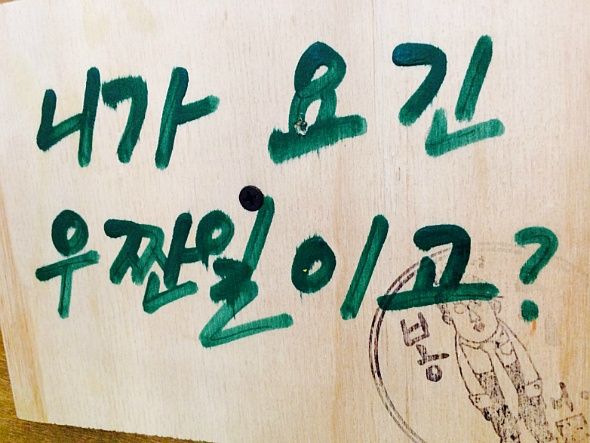 니가 요긴
우짠일이고?
봉